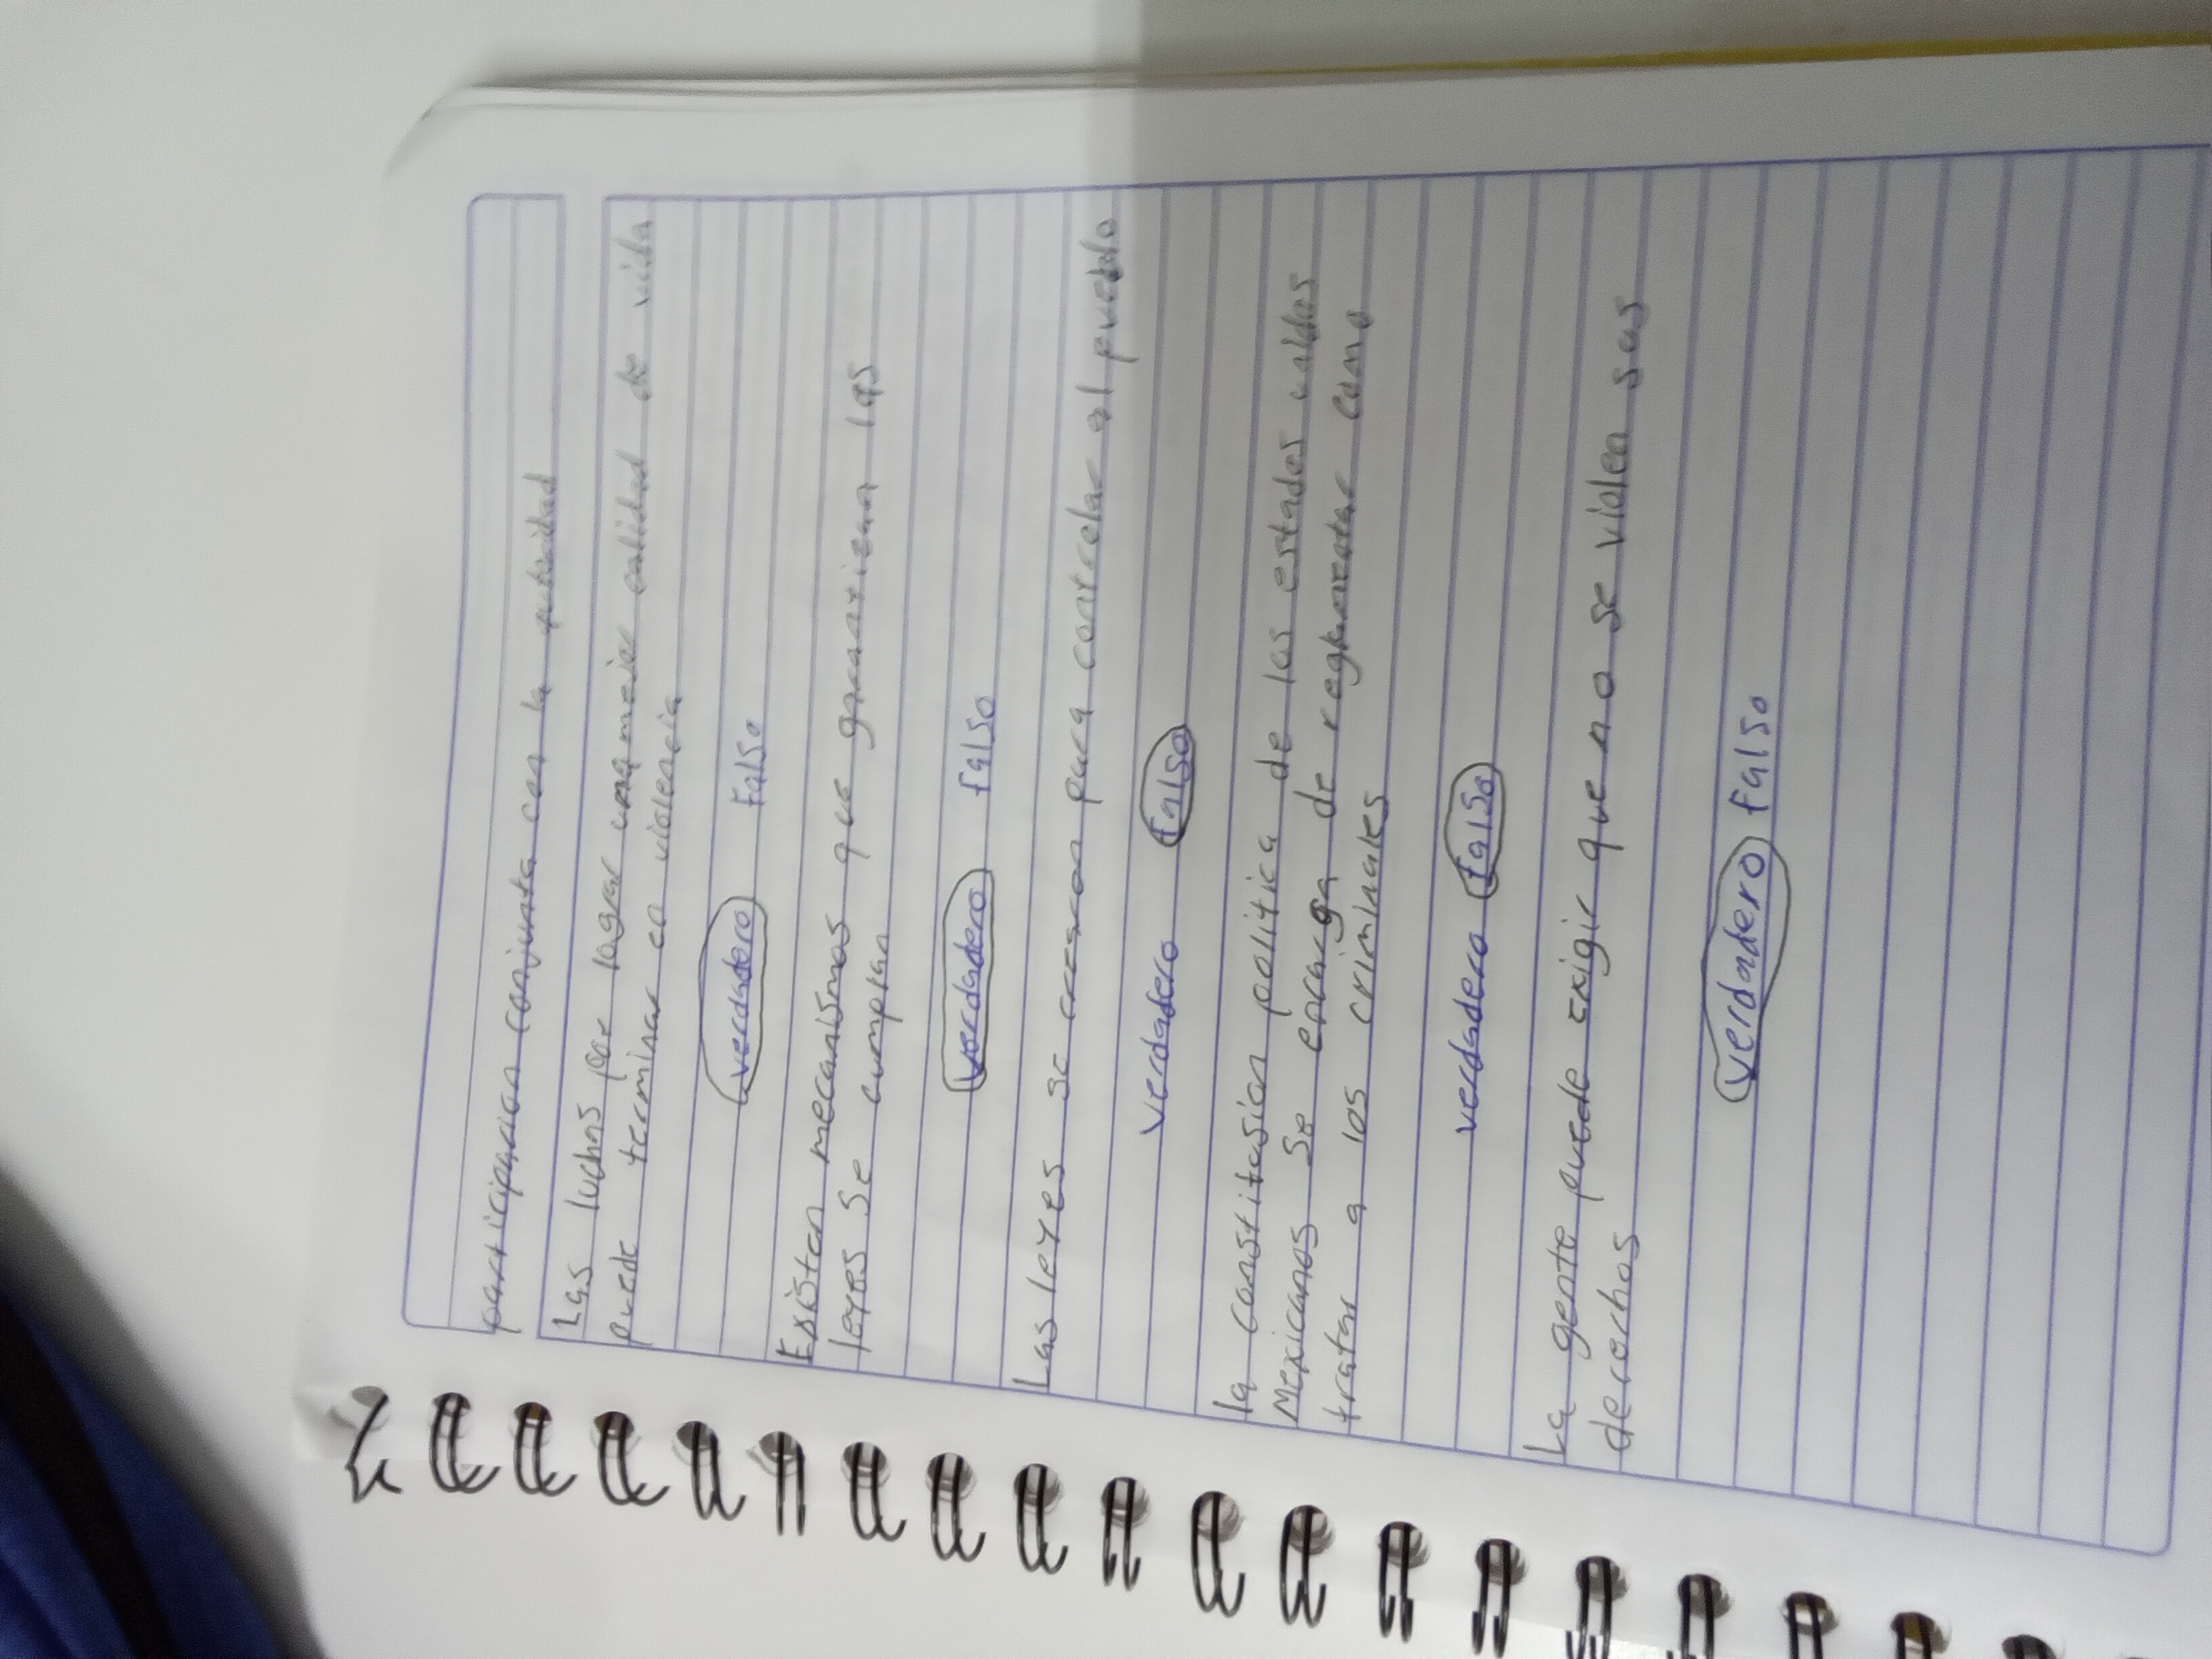 participacion conjunta con la autoridad
Las luchas por lograr una mejor calidad de vida
puede terminar en violencia
verdadero Falso
Existen mecanismos que garantizan las
leyes se cumplan
verdadero falso
Las leyes se crearon para controlar al pueblo
verdadero falso
la constitusion politica de los estados unidos
Mexicanos se encarga de reglamentar como
tratar a los criminales
verdadero falso
La gente puede exigir que no se violen sus
derechos
verdadero falso